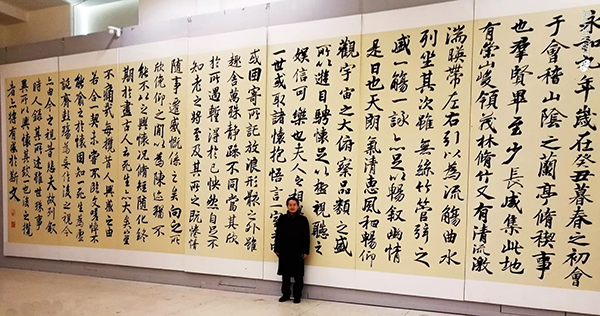 永和九年歲在癸丑暮春之初會
于會稽山陰之蘭亭脩稧事
也群賢畢至少長咸集此地
有崇山峻領茂林脩竹又有清流激
湍暎帶左右引以為流觴曲水
列坐其次雖無絲竹管弦之
盛一觴一詠亦足以暢敘幽情
是日也天朗氣清惠風和暢仰
觀宇宙之大俯察品類之盛
所以遊目騁懷足以極視聽之
娛信可樂也夫人之
一世或取諸懷抱悟言一室
或因寄所託放浪形骸之外雖
趣舍萬殊靜躁不同當其欣
於所遇暫得於己怏然自足不
知老之將至及其所之既惓情
隨事遷感慨係之矣向之所
欣俛仰之閒以為陳迹猶不
能不以之興懷況脩短隨化終
期於盡古人云死生亦大矣豈
不痛哉每攬昔人興感之由
若合一契未嘗不臨文嗟悼不
能喻之於懷固知一死生為虛
誕齊彭殤為妄作後之視今
亦由今之視昔悲夫故列敘
時人錄其所述雖世殊事
異所以興懷其致一也後之攬
者亦將有感於斯文